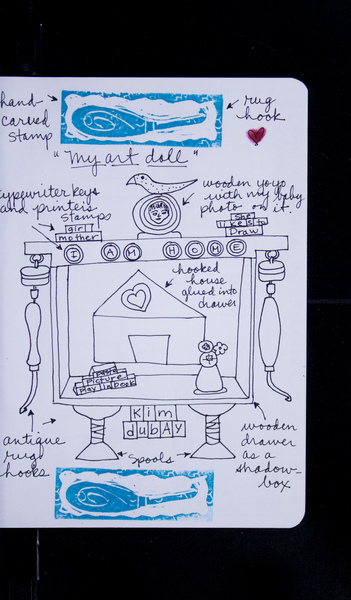 hand-
carved
stamp
rug
hook
"my art doll"
typewriter keys
and printers
stamps
wooden yoyo
with my baby
photo on it.
girl
mother
she
likes to
Draw
I AM HOME
hooked
house
glued into
drawer
picture
play in book
Kim
dubAy
antique
rug
hooks
spools
wooden
drawer
as a
shadow-
box